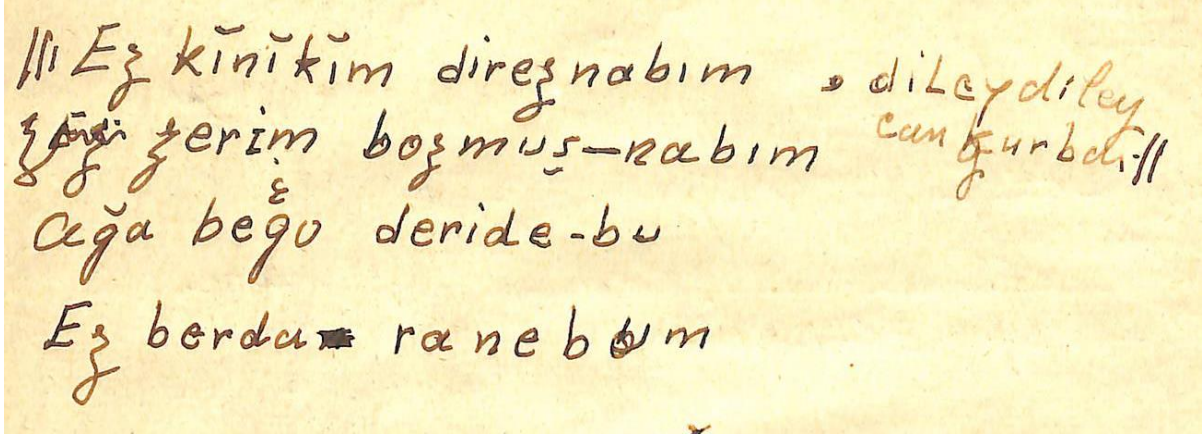 ||| Ez kĭnĭkĭm direz nabım , dileydiley
zerim bozmuş-nabım can qurban ||
ağa beğo deride-bu
Ez berda ranebum